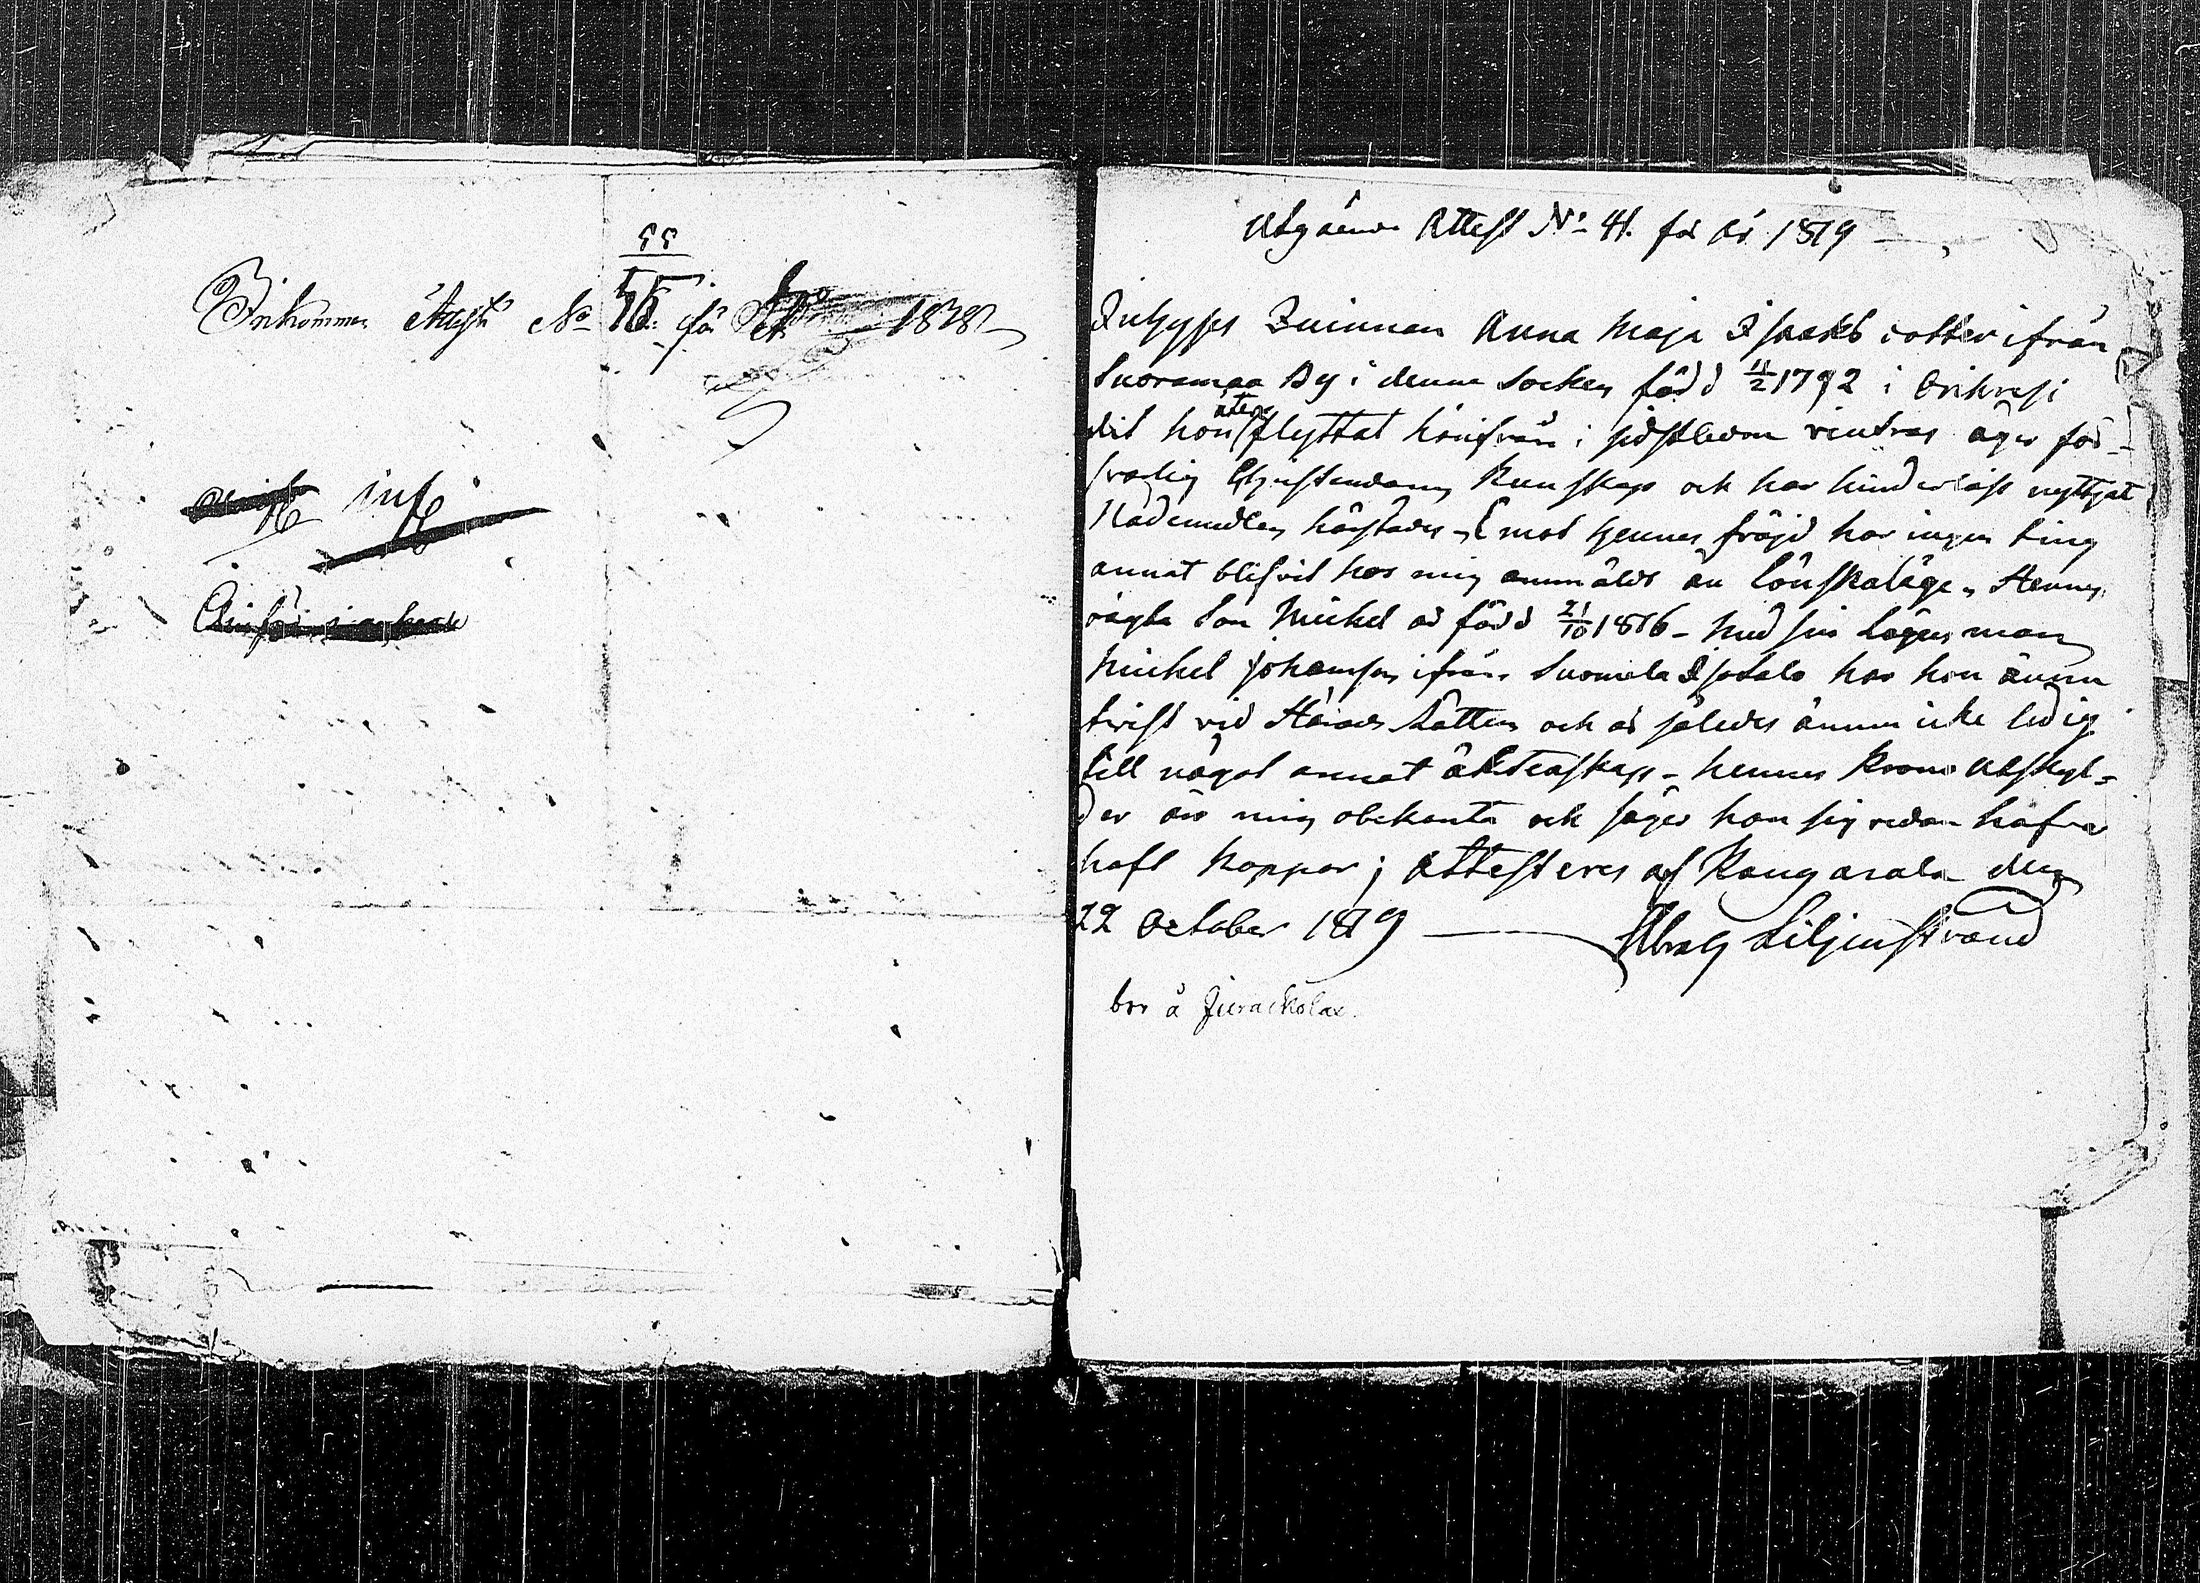 55
Inkommen Attest No 56. för År 1818
inf
Utgående Attest No 41. för År 1819
Inhyses Qvinnan Anna Maja Isaaks dotter ifrån
Suoramaa By i denna Socken född 11/2 1792 i Orihvesi
dit hon åter flyttat härifrån i sidstledne vintras äger för-
svarlig Christendoms Kunskap och har hinderlöst nyttjat
Nådemedlen härstädes, Emot hennes fräjd har ingen ting
annat blifvit hos mig anmäldt än Lönskaläge, Hennes
oägta Son Michel är född 21/10 1816 - med sin Lägersman
Michel Johansson ifrån Suomela Isotalo har hon ännu
tvist vid Härads Rätten och är således ännu icke ledig
till något annat äktenskap - hennes Krono Utskyl-
der äro mig obekanta och säger hon sig redan hafva
haft Koppor; Attesteres af Kangasala den
22 October 1819 Abrah Liljenstrand
bor å